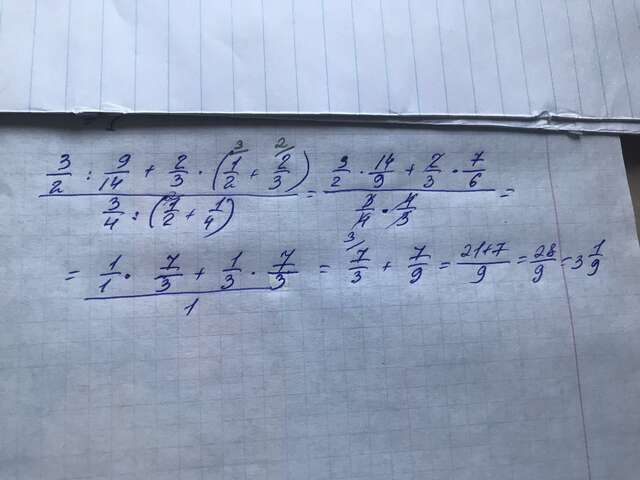 3/2 : 9/14 + 2/3 · (1/2 + 2/3) / 3/4 : (1/2 + 1/4) = 3/2 · 14/9 + 2/3 · 7/6 / 3/4 · 4/3 =
= 1/1 · 7/3 + 1/3 · 7/3 / 1 = 7/3 + 7/9 = 21+7/9 = 28/9 = 3 1/9